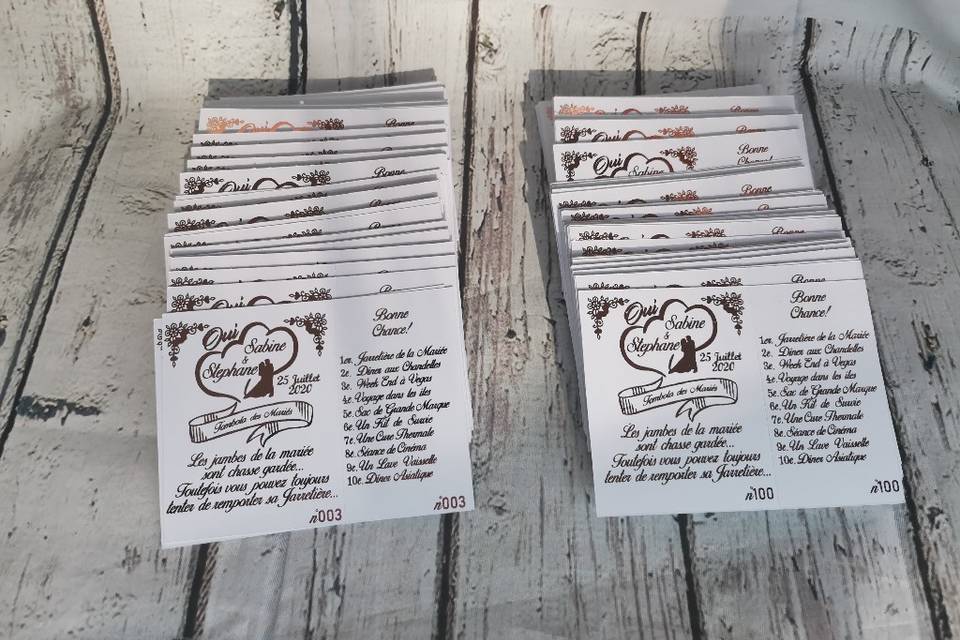 Oui
Bonne
Oui
Bonne
Bonne
Bonne
Oui
Sabine
&
Stephane
25 Juillet
2020
Tombola des Mariés
Les jambes de la mariée
sont chasse gardée...
Toutefois vous pouvez toujours
tenter de remporter sa Jarretière...
n°003
Bonne
Chance!
1er. Jarretière de la Mariée
2e. Dîner aux Chandelles
3e. Week End à Vegas
4e. Voyage dans les îles
5e. Sac de Grande Marque
6e. Un Kit de Survie
7e. Une Cure Thermale
8e. Séance de Cinéma
9e. Un Lave Vaisselle
10e. Dîner Asiatique
n°003
Bonne
Bonne
Oui
Sabine
Bonne
Chance!
Bonne
Bonne
Oui
Sabine
&
Stephane
25 Juillet
2020
Tombola des Mariés
Les jambes de la mariée
sont chasse gardée...
Toutefois vous pouvez toujours
tenter de remporter sa Jarretière...
n°100
Bonne
Chance!
1er. Jarretière de la Mariée
2e. Dîner aux Chandelles
3e. Week End à Vegas
4e. Voyage dans les îles
5e. Sac de Grande Marque
6e. Un Kit de Survie
7e. Une Cure Thermale
8e. Séance de Cinéma
9e. Un Lave Vaisselle
10e. Dîner Asiatique
n°100